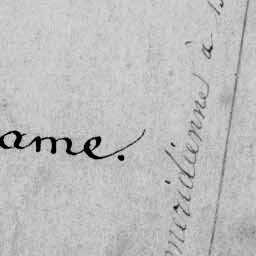 ame.
méridienne à